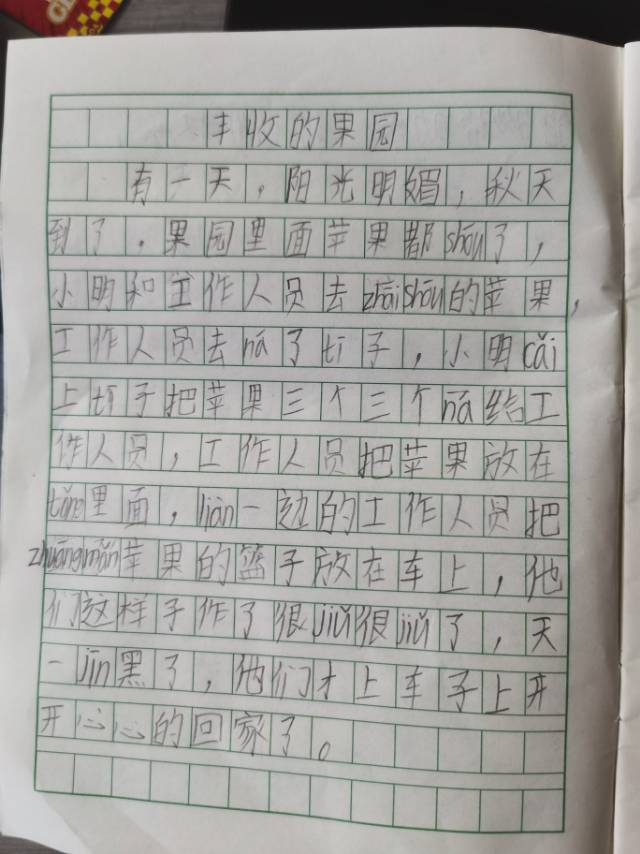 丰收的果园
有一天，阳光明媚，秋天
到了。果园里面苹果都shōu了，
小明和工作人员去zhāishōu的苹果，
工作人员去ná了tī子，小明cǎi
上tī子把苹果三个三个ná给工
作人员，工作人员把苹果放在
里面，liàn一边的工作人员把
zhuāngmǎn苹果的篮子放在车上，他
们这样子作了很jiǔ很jiǔ了，天
一jīn黑了，他们才上车子上开
开心心的回家了。